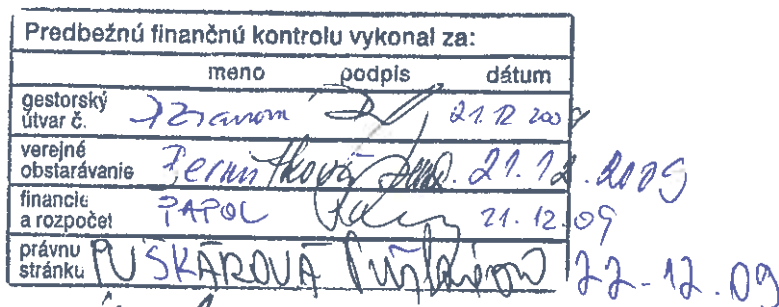 Predbežnú finančnú kontrolu vykonal za:
meno podpis dátum
gestorský
útvar č. 21.12 2009
verejné
obstarávanie 21.12.2009
financie
a rozpočet PAPOL 21.12.09
právnu
stránku PUŠKÁROVÁ 22.12.09